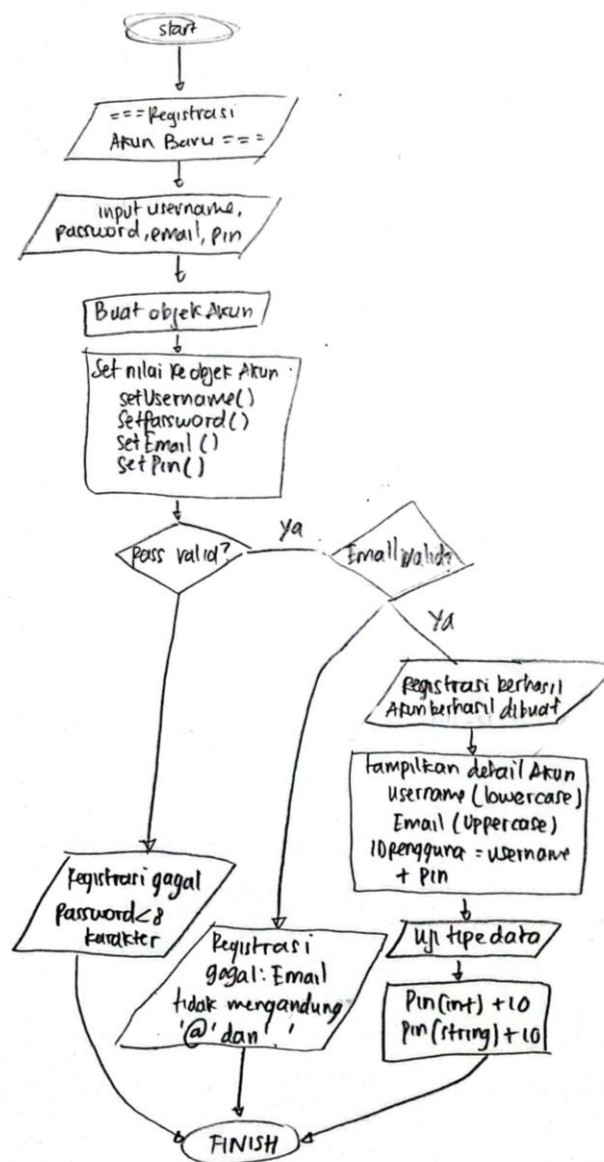 start
===Registrasi
Akun Baru===
input username,
password, email, pin
Buat objek Akun
Set nilai ke objek Akun:
setUsername()
SetPassword()
setEmail()
setPin()
pass valid?
Ya
Email valid?
Ya
Registrasi berhasil
Akun berhasil dibuat
tampilkan detail Akun
Username (lowercase)
Email (Uppercase)
ID pengguna = username
+ Pin
Registrasi gagal
Password<8
karakter
Registrasi
gagal: Email
tidak mengandung
'@' dan '.'
Uji tipe data
Pin(int) +10
Pin(string)+10
FINISH